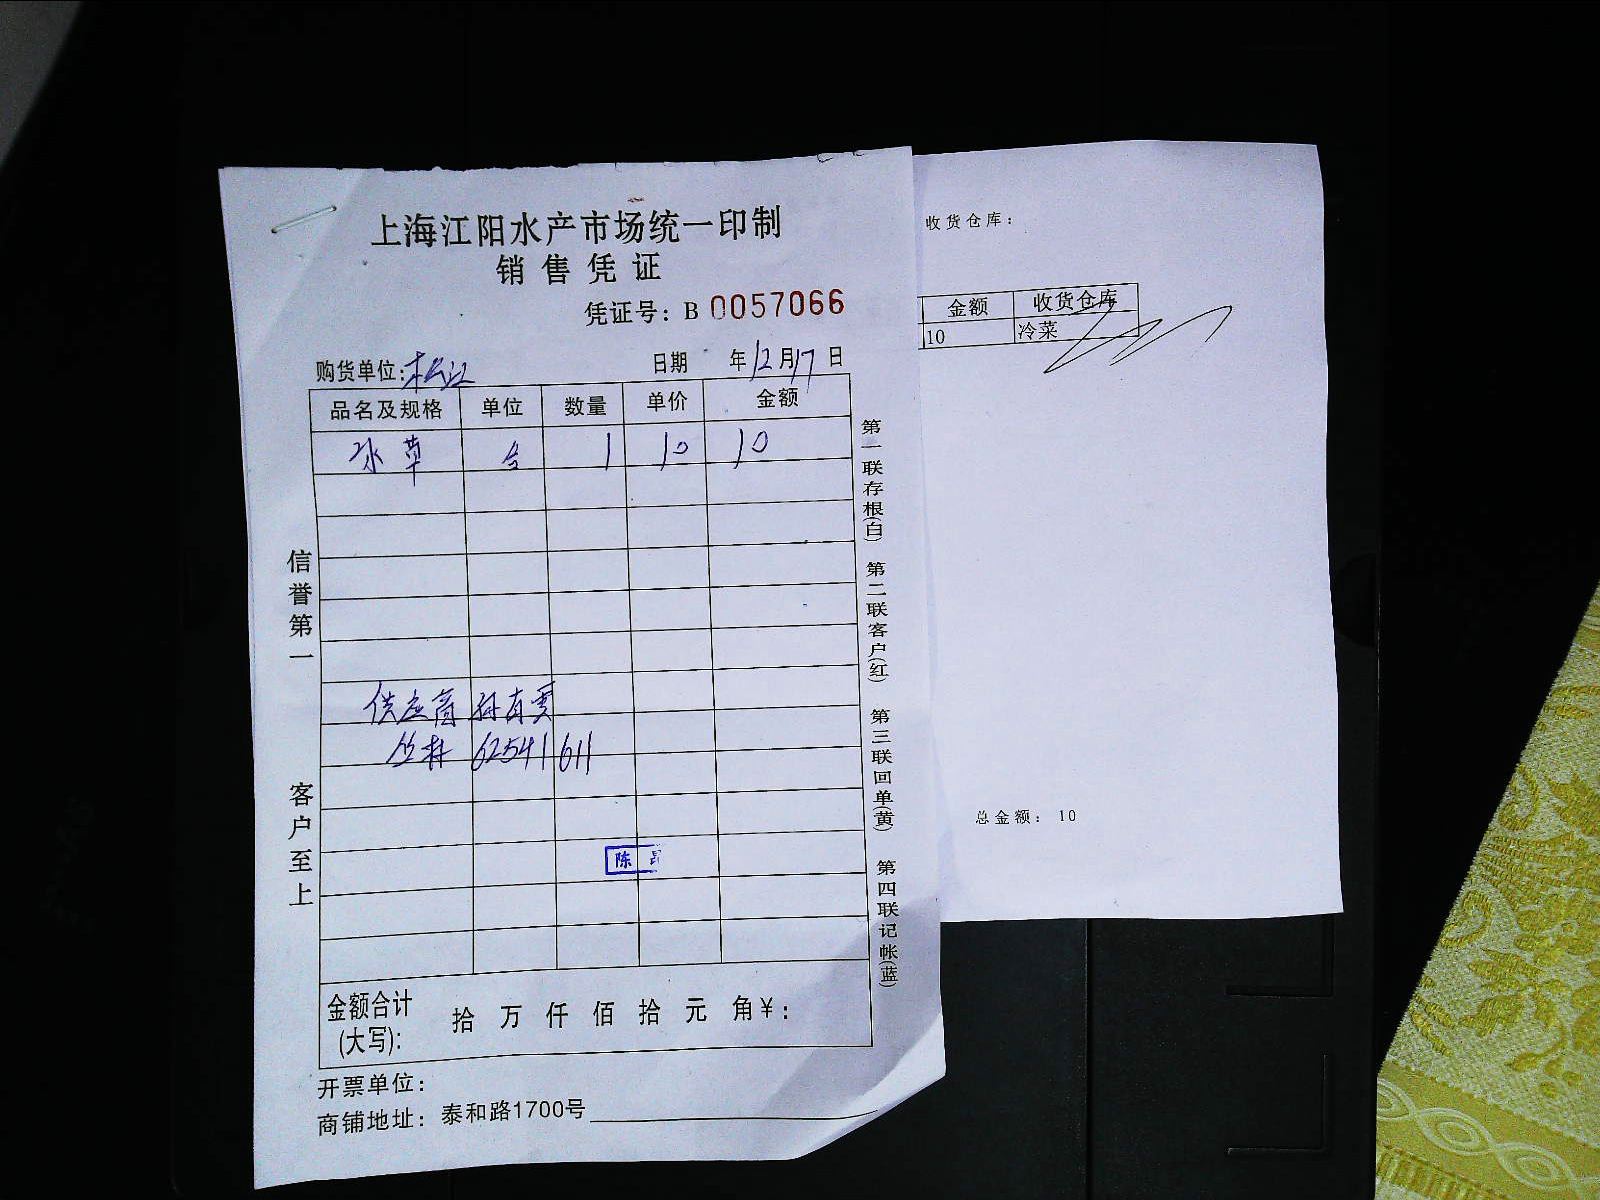 上海江阳水产市场统一印制
销售凭证
凭证号：B 0057066
购货单位：松江 日期 年12月17日
品名及规格 单位 数量 单价 金额
冰草 合 1 10 10
供应商 孙有
62541611
陈
金额合计(大写)： 拾 万 仟 佰 拾 元 角 ￥：
开票单位：
商铺地址：泰和路1700号
信誉第一 客户至上
第一联存根(白) 第二联客户(红) 第三联回单(黄) 第四联记帐(蓝)
收货仓库：
金额 收货仓库
10 冷菜
总金额： 10